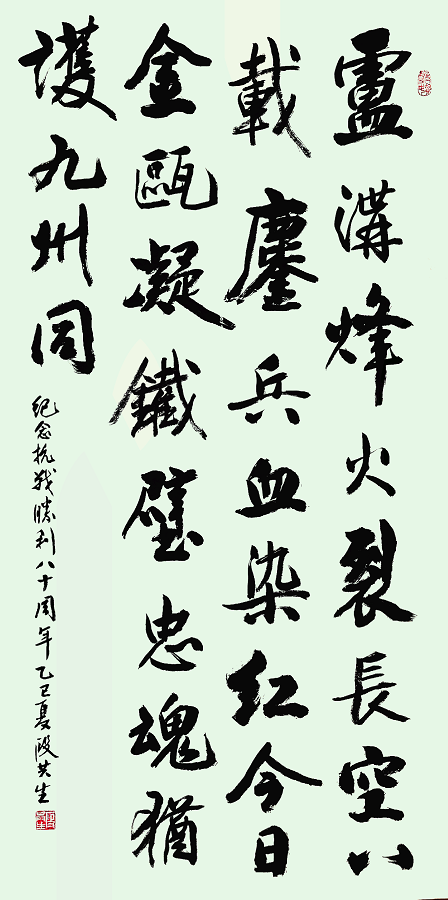 盧溝烽火裂長空八
載鏖兵血染紅今日
金甌凝鐵壁忠魂猶
護九州同
紀念抗战勝利八十周年乙巳夏段共生